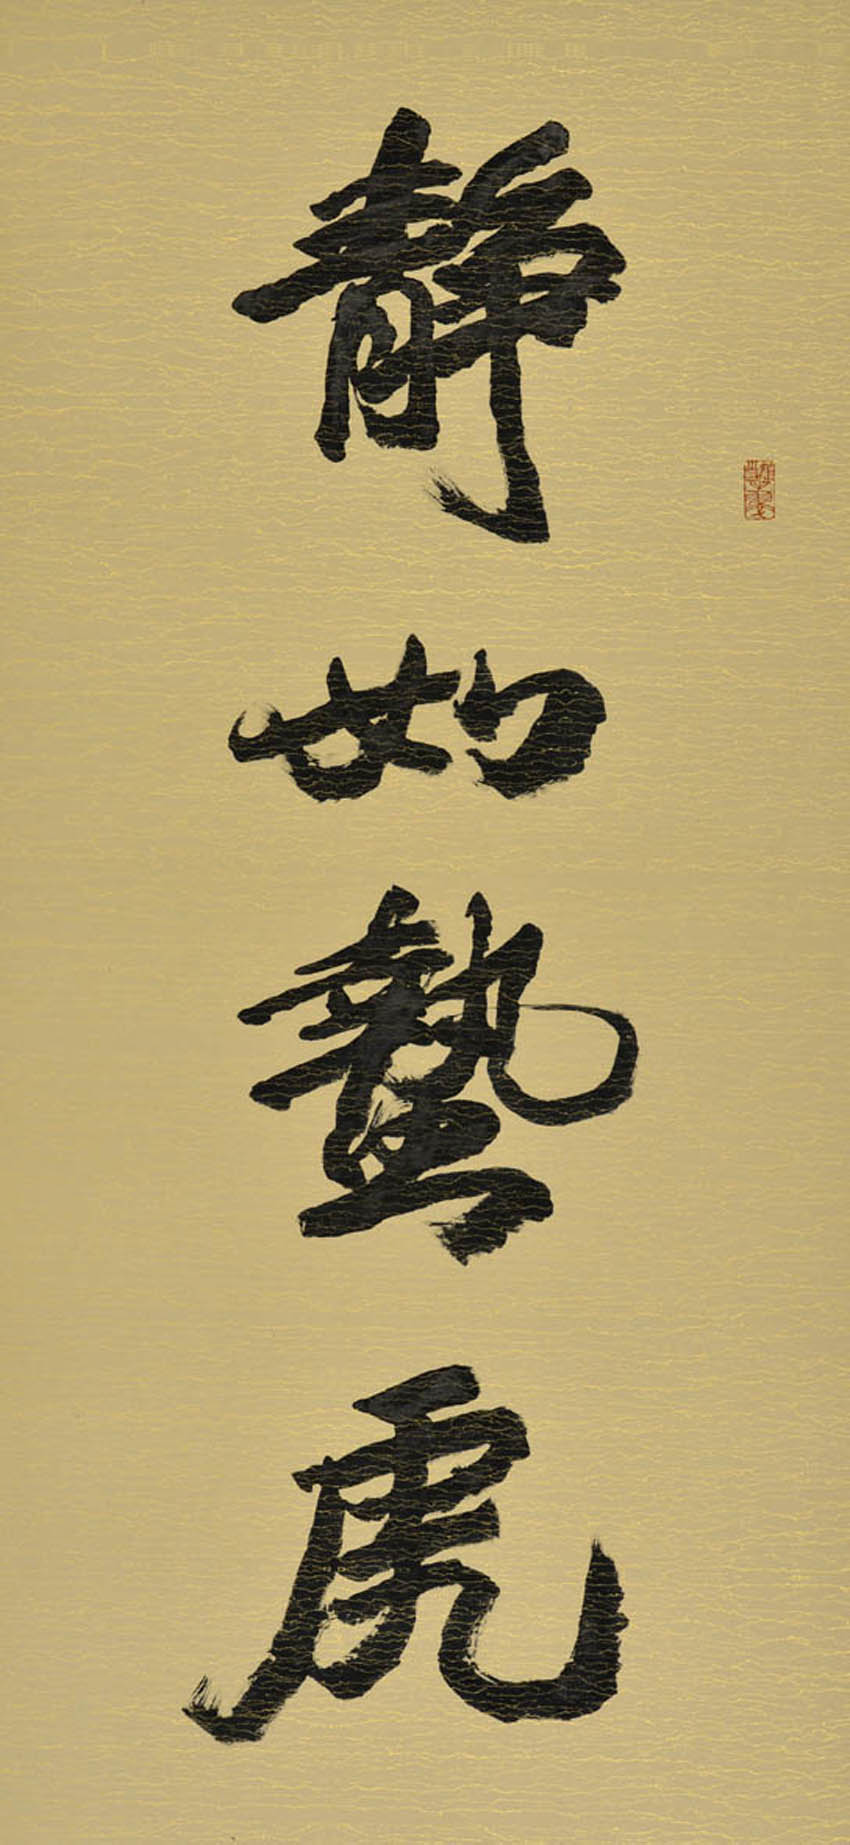 靜如蟄虎